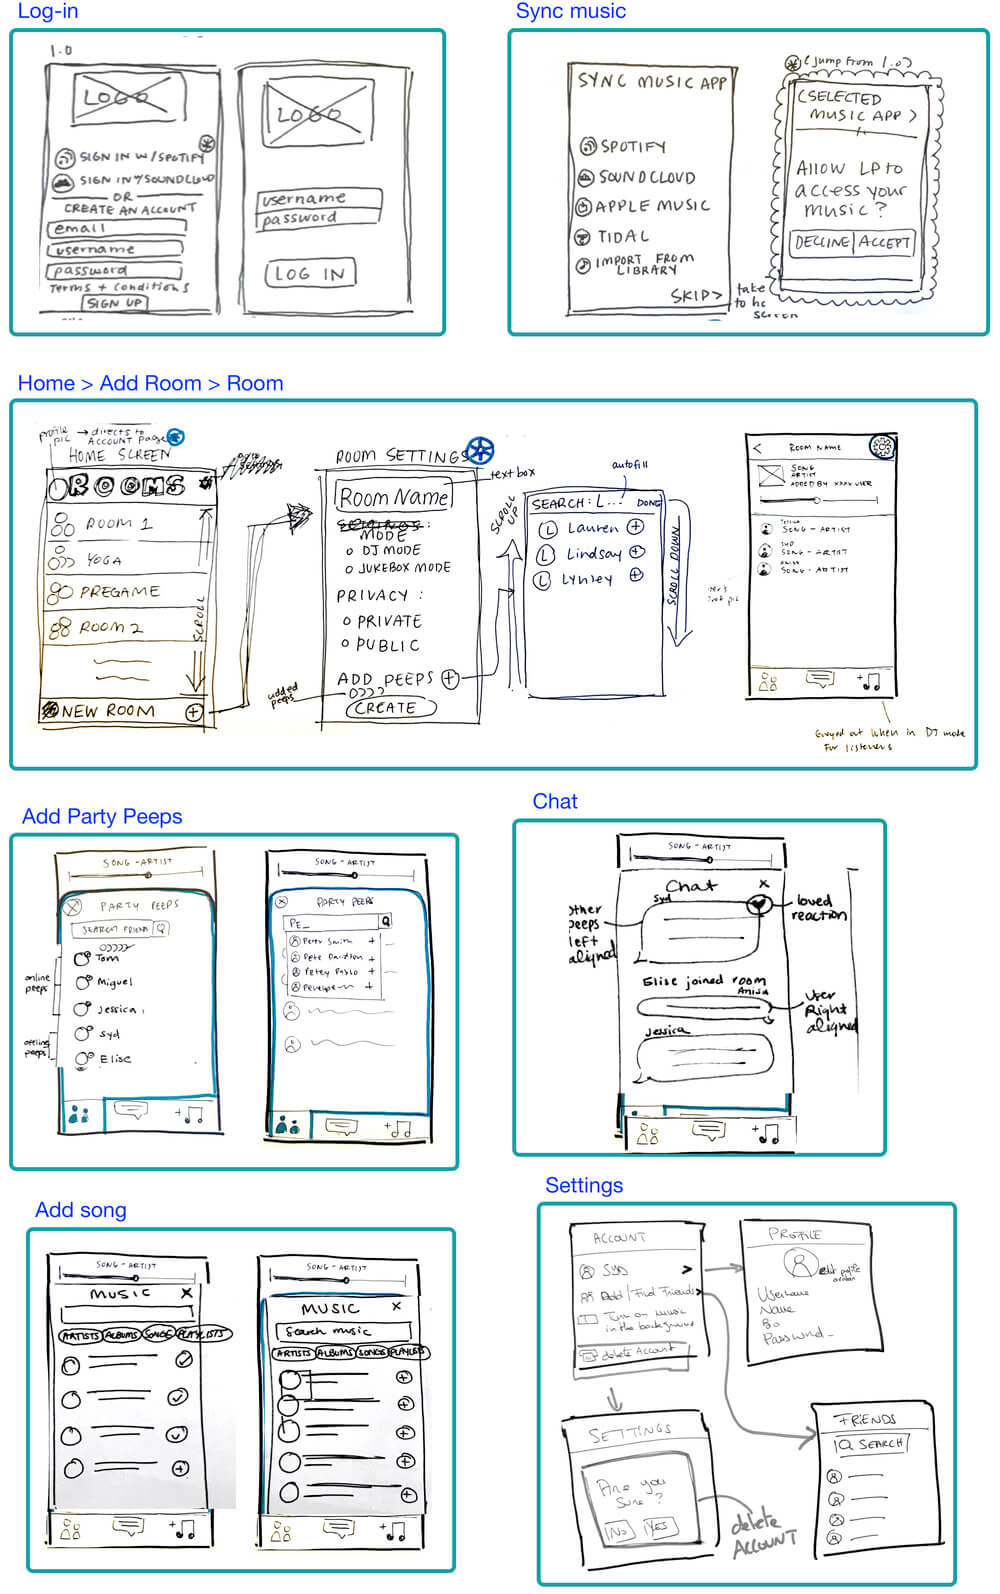 Log-in
1.0
LOGO
SIGN IN W/SPOTIFY
SIGN IN W/SOUNDCLOUD
OR
CREATE AN ACCOUNT
email
username
password
Terms + Conditions
SIGN UP
LOGO
username
password
LOG IN
Sync music
SYNC MUSIC APP
SPOTIFY
SOUNDCLOUD
APPLE MUSIC
TIDAL
IMPORT FROM
LIBRARY
SKIP>
take
to
screen
(jump from 1.0)
(SELECTED
MUSIC APP >
ALLOW LP to
access your
music?
DECLINE
ACCEPT
Home > Add Room > Room
profile
pic
→ directs to
ACCOUNT page
HOME SCREEN
ROOMS
ROOM 1
YOGA
PREGAME
ROOM 2
SCROLL
NEW ROOM
ROOM SETTINGS
text box
Room Name
MODE
DJ MODE
JUKEBOX MODE
PRIVACY :
PRIVATE
PUBLIC
ADD PEEPS
added
peeps
CREATE
SCROLL
UP
autofill
SEARCH: L...
DONE
L Lauren
L Lindsay
L Lynsey
SCROLL DOWN
ROOM NAME
SONG
ARTIST
ADDED BY XXXX USER
SONG - ARTIST
SYD
SONG - ARTIST
SONG - ARTIST
Greyed out when in DJ mode
for listeners
Add Party Peeps
SONG - ARTIST
PARTY PEEPS
SEARCH FRIEND
Tom
Miguel
Jessica
Syd
Elise
online
peeps
offline
peeps
SONG - ARTIST
PARTY PEEPS
PE_
Peter Smith +
Pete Davidson +
Petey Pablo +
+
Chat
SONG - ARTIST
Chat
X
Syd
loved
reaction
other
peeps
left
aligned
Elise joined room
Anisa
User
Right
aligned
Jessica
Add song
SONG - ARTIST
MUSIC
X
ARTISTS
ALBUMS
SONGS
PLAYLISTS
SONG - ARTIST
MUSIC
X
Search music
ARTISTS
ALBUMS
SONGS
PLAYLISTS
Settings
ACCOUNT
SYD
Add / Find Friends
Turn on music
in the background
delete Account
PROFILE
edit profile
Username
Name
Bio
Password
SETTINGS
Are you
Sure ?
NO
YES
delete
ACCOUNT
FRIENDS
SEARCH